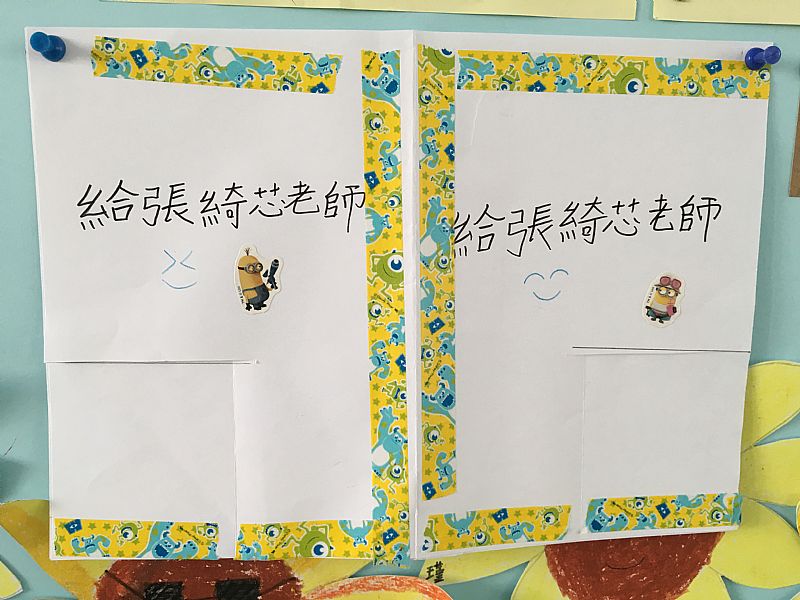 給張綺芯老師
給張綺芯老師
瑾